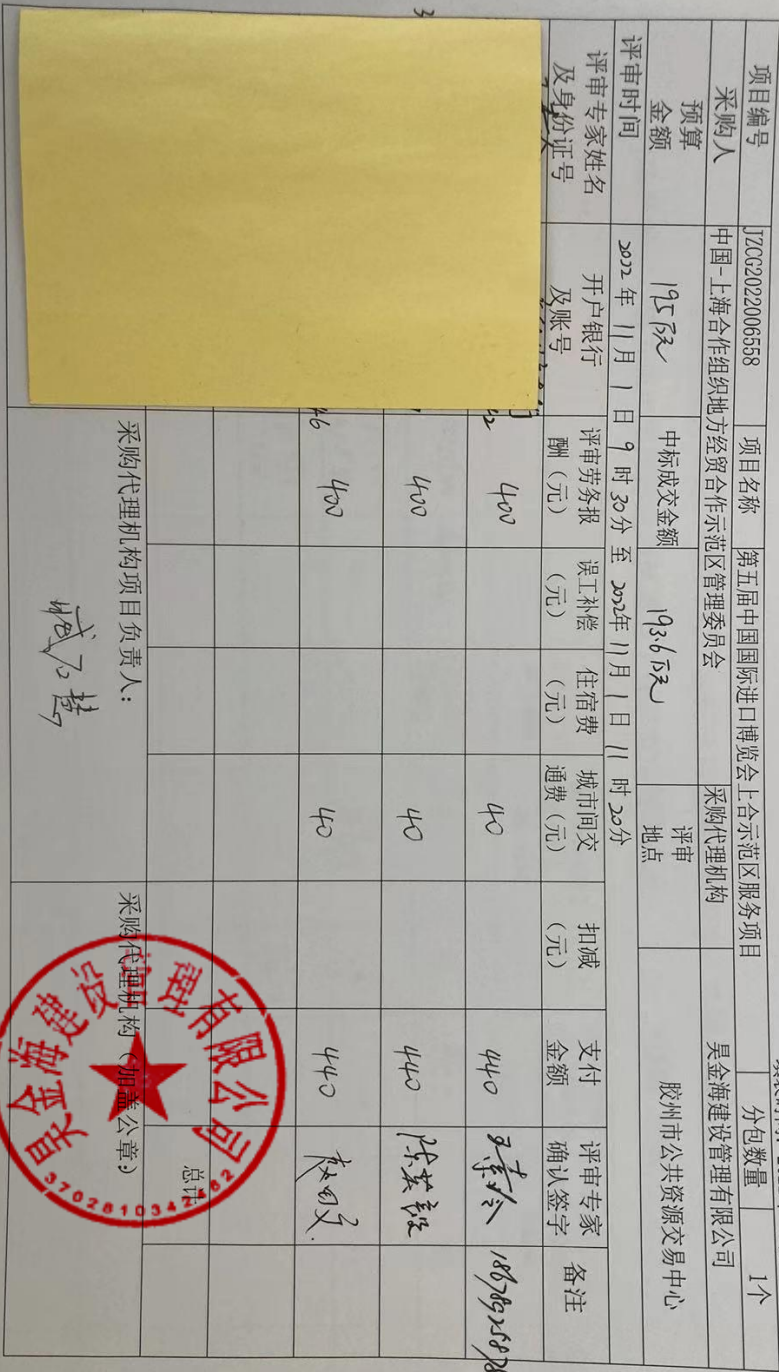 项目编号 JZCG2022006558 项目名称 第五届中国国际进口博览会上合示范区服务项目 分包数量 1个
采购人 中国-上海合作组织地方经贸合作示范区管理委员会 采购代理机构 昊金海建设管理有限公司
预算金额 195万元 中标成交金额 193.6万元 评审地点 胶州市公共资源交易中心
评审时间 2022年11月1日9时30分至2022年11月1日11时20分
评审专家姓名及身份证号 开户银行及账号 评审劳务报酬（元） 误工补偿（元） 住宿费（元） 城市间交通费（元） 扣减（元） 支付金额 评审专家确认签字 备注
400 40 440
400 40 440 陈英毅
46 400 40 440
总计
采购代理机构项目负责人： 采购代理机构（加盖公章）
昊金海建设管理有限公司
3702810342462